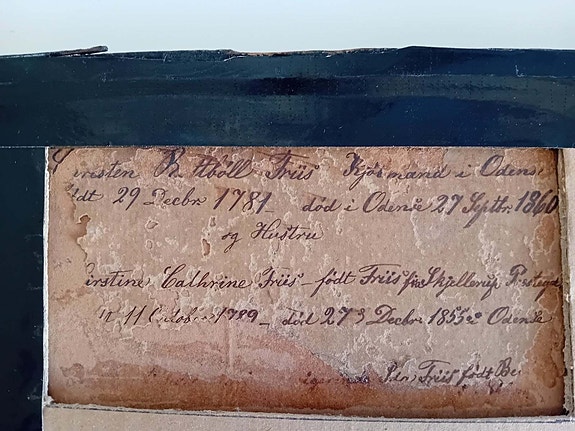 Christen Rottböll Friis Kjöbmand i Odense
født 29 Decbr 1781 död i Odense 27 Septbr. 1860
og Hustru
Kirstine Cathrine Friis – født Friis fra Skjellerup Præstegd
11 October 1789 – död 27 Decbr 1855 i Odense
Friis født